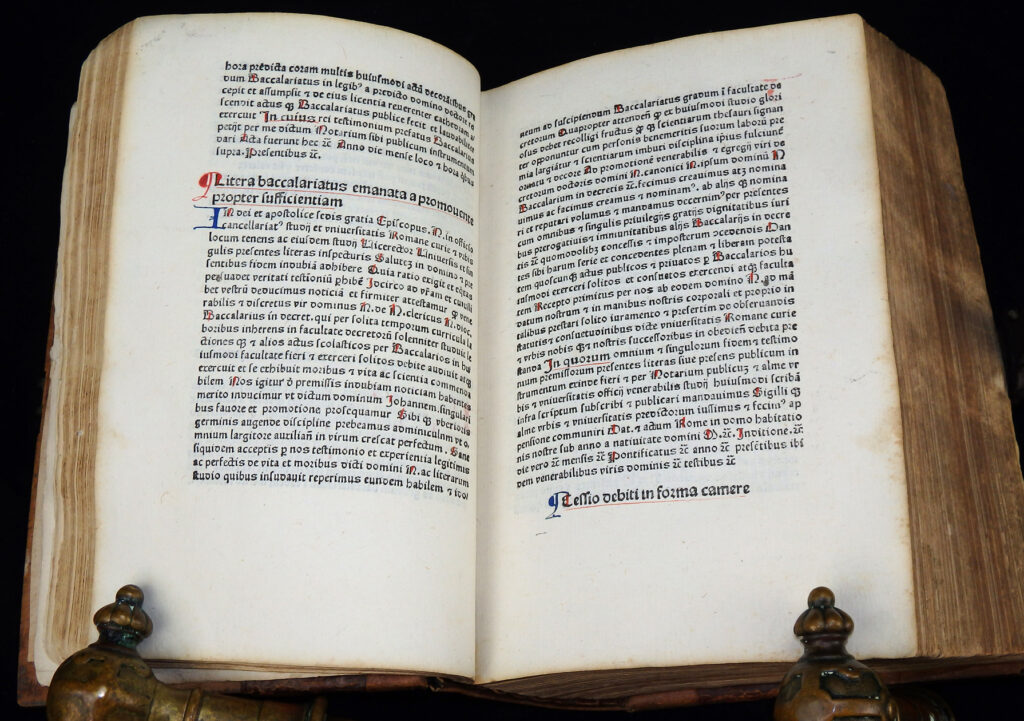 hora predicta coram multis huiusmodi actū decorātibus
dum Baccalariatus in legibꝰ a predicto domino doctore
cepit et assumpsit ⁊ de eius licentia reuerenter cathedram
scendit actus qꝫ Baccalariatus publice fecit et laudabiliter
exercuit In cuius rei testimonium prefatus Baccalarius
petijt per me dictum Notarium sibi publicum instrumentum
dari Acta fuerunt hec ⁊c̄ Anno die mense loco ⁊ hora quibus
supra. Presentibus ⁊c̄.
Litera baccalariatus emanata a promouente
propter sufficientiam
IN dei et apostolice sedis gratia Episcopus .N. in officio
cancellariatꝰ studij et vniuersitatis Romane curie ⁊ vrbis
locum tenens ac eiusdem studij Uicerector Uniuersis et sin
gulis presentes literas inspecturis Salutē in domino ⁊ pre
sentibus fidem indubiā adhibere Quia ratio exigit et
persuadet veritati testioniū phibē Idcirco ad vr̄am et cuiuslibet
bet vestrū deducimus noticiā et firmiter attestamur ꝙ vene
rabilis ⁊ discretus vir dominus .N. de .N. clericus .N. dioc.
Baccalarius in decret. qui per solita temporum curricula la
boribus inherens in facultate decretorū solenniter studuit le
ctiones qꝫ ⁊ alios actus scolasticos per Baccalarios in hu
iusmodi facultate fieri ⁊ exerceri solitos debite audiuit atqꝫ
exercuit et se exhibuit moribus ⁊ vita ac scientia commenda
bilem Nos igitur ꝺ̄ premissis indubiam noticiam habentes
merito inducimur vt dictum dominum Johannem. singulari
bus fauore et promotione prosequamur Sibi qꝫ vberioris
germinis augende discipline prebeamus adminiculum vt o
mnium largitore auxiliāte in virum crescat perfectum. Sane
siquidem acceptis ꝑ nos testimonio et experientia legitimis
ac perfectis de vita et moribus dicti domini .N. ac literarum
studio quibus insudauit reperimus eundem habilem ⁊ ido/
neum ad suscipiendum Baccalariatus gradum ī facultate de
cretorum Quapropter attendentes ꝙ ex huiusmodi studio glori
osus debet recolligi fructus ꝙ qꝫ scientiarum thesauri signan
ter opponuntur cum personis benemeritis suorum laborū pre
mia largiātur ⁊ scientiarum imbuti disciplina ipsius fulciuntur
ornatu ⁊ decore Ad promotionē venerabilis ⁊ egregij viri de
cretorum doctoris domini .N. canonici .N. ipsum dominū .N.
Baccalarium in decretis ⁊c̄. fecimus creauimus atqꝫ nomina
uimus ac facimus creamus ⁊ nominamꝰ. ab alijs qꝫ nomina
ri et reputari volumus ⁊ mandamus decernimꝰ per presentes
cum omnibus ⁊ singulis priuilegijs gratijs dignitatibus iuri
bus prerogatiuis ⁊ immunitatibus alijs Baccalarijs in decre
tis ⁊c̄ quomodolibꝫ concessis ⁊ imposterum ꝯcedendis Dan
tes sibi harum serie et concedentes plenam ⁊ liberam potesta
tem quoscunqꝫ actus publicos ⁊ priuatos ꝑ Baccalarios hu
iusmodi exerceri solitos et consuetos exercendi atqꝫ faculta
tem Recepto primitus per nos ab eodem domino .N. ad mā
datum nostrum ⁊ in manibus nostris corporali et proprio in
talibus prestari solito iuramento ⁊ presertim de obseruandis
statutis ⁊ consuetudinibus dicte vniuersitatis Romane curie
⁊ vrbis nobis qꝫ ⁊ nostris successoribus in obediēti debita pre
standa In quorum omnium ⁊ singulorum fidem ⁊ testimo
nium premissorum presentes literas siue presens publicum in
strumentum exinde fieri ⁊ per Notarium publicū ⁊ alme vr
bis ⁊ vniuersitatis officij venerabilis studij huiusmodi scribā
infra scriptum subscribi ⁊ publicari mandauimus Sigilli qꝫ
alme vrbis ⁊ vniuersitatis predictorum iussimus ⁊ fecimꝰ ap
pensione communiri Dat. ⁊ actum Rome in domo habitatio
nis nostre sub anno a natiuitate domini .M.⁊c̄. Indictione .⁊c̄.
die vero ⁊c̄ mensis ⁊c̄ Pontificatus ⁊c̄ anno ⁊c̄ presētibus ibi
dem venerabilibus viris dominis ⁊c̄ testibus ⁊c̄
Cessio debiti in forma camere